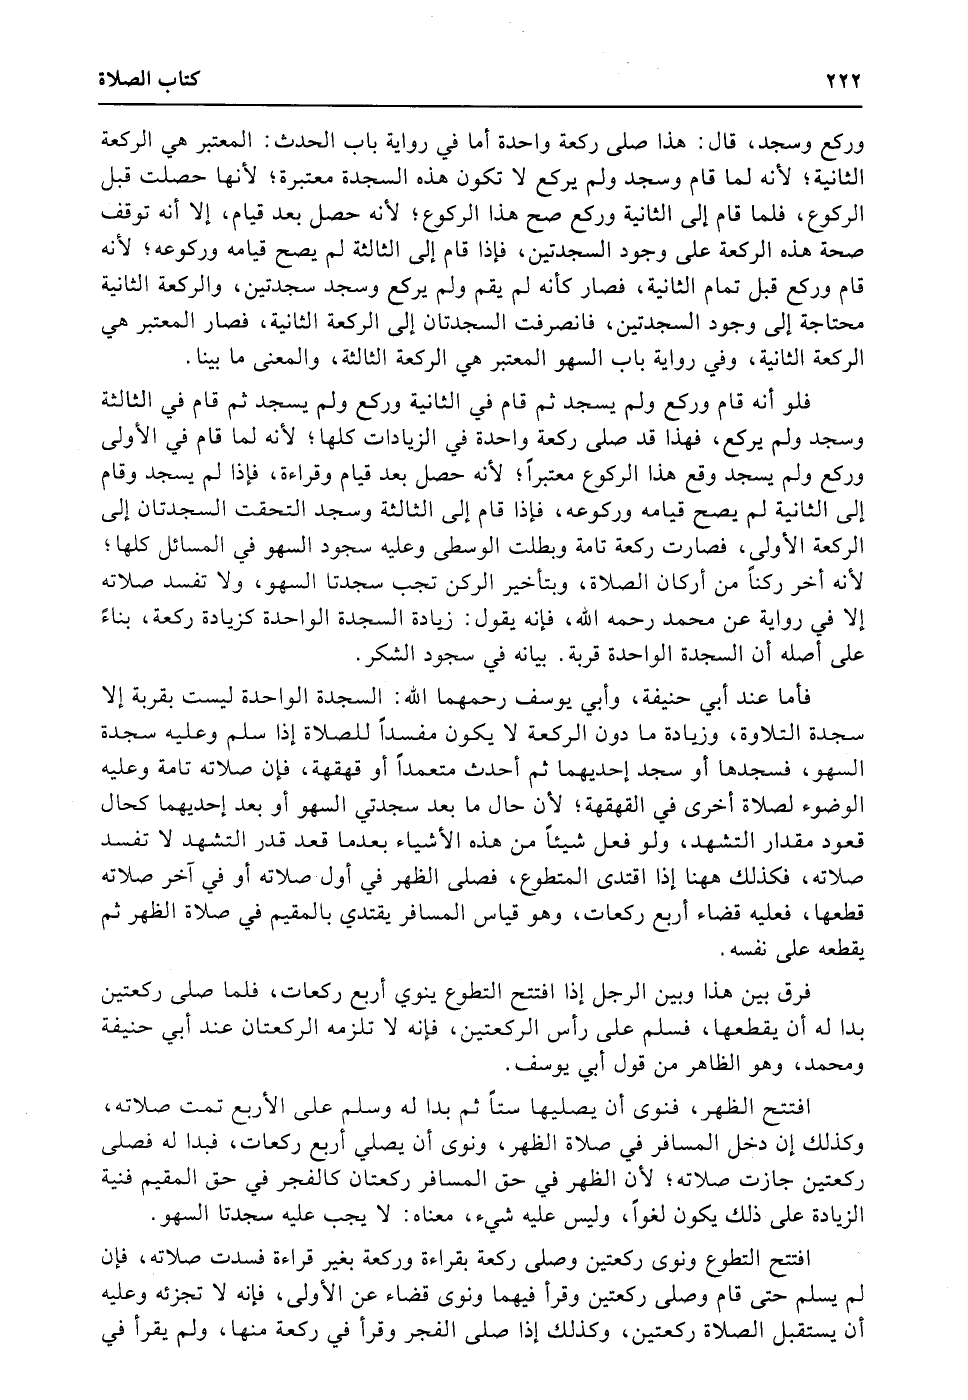 ٢٢٢ كتاب الصلاة
وركع وسجد، قال: هذا صلى ركعة واحدة أما في رواية باب الحدث: المعتبر هي الركعة
الثانية؛ لأنه لما قام وسجد ولم يركع لا تكون هذه السجدة معتبرة؛ لأنها حصلت قبل
الركوع، فلما قام إلى الثانية وركع صح هذا الركوع؛ لأنه حصل بعد قيام، إلا أنه توقف
صحة هذه الركعة على وجود السجدتين، فإذا قام إلى الثالثة لم يصح قيامه وركوعه؛ لأنه
قام وركع قبل تمام الثانية، فصار كأنه لم يقم ولم يركع وسجد سجدتين، والركعة الثانية
محتاجة إلى وجود السجدتين، فانصرفت السجدتان إلى الركعة الثانية، فصار المعتبر هي
الركعة الثانية، وفي رواية باب السهو المعتبر هي الركعة الثالثة، والمعنى ما بينا.
فلو أنه قام وركع ولم يسجد ثم قام في الثانية وركع ولم يسجد ثم قام في الثالثة
وسجد ولم يركع، فهذا قد صلى ركعة واحدة في الزيادات كلها؛ لأنه لما قام في الأولى
وركع ولم يسجد وقع هذا الركوع معتبراً؛ لأنه حصل بعد قيام وقراءة، فإذا لم يسجد وقام
إلى الثانية لم يصح قيامه وركوعه، فإذا قام إلى الثالثة وسجد التحقت السجدتان إلى
الركعة الأولى، فصارت ركعة تامة وبطلت الوسطى وعليه سجود السهو في المسائل كلها؛
لأنه أخر ركناً من أركان الصلاة، وبتأخير الركن تجب سجدتا السهو، ولا تفسد صلاته
إلا في رواية عن محمد رحمه الله، فإنه يقول: زيادة السجدة الواحدة كزيادة ركعة، بناءً
على أصله أن السجدة الواحدة قربة. بيانه في سجود الشكر.
فأما عند أبي حنيفة، وأبي يوسف رحمهما الله: السجدة الواحدة ليست بقربة إلا
سجدة التلاوة، وزيادة ما دون الركعة لا يكون مفسداً للصلاة إذا سلم وعليه سجدة
السهو، فسجدها أو سجد إحديهما ثم أحدث متعمداً أو قهقهة، فإن صلاته تامة وعليه
الوضوء لصلاة أخرى في القهقهة؛ لأن حال ما بعد سجدتي السهو أو بعد إحديهما كحال
قعود مقدار التشهد، ولو فعل شيئاً من هذه الأشياء بعدما قعد قدر التشهد لا تفسد
صلاته، فكذلك ههنا إذا اقتدى المتطوع، فصلى الظهر في أول صلاته أو في آخر صلاته
قطعها، فعليه قضاء أربع ركعات، وهو قياس المسافر يقتدي بالمقيم في صلاة الظهر ثم
يقطعه على نفسه.
فرق بين هذا وبين الرجل إذا افتتح التطوع ينوي أربع ركعات، فلما صلى ركعتين
بدا له أن يقطعها، فسلم على رأس الركعتين، فإنه لا تلزمه الركعتان عند أبي حنيفة
ومحمد، وهو الظاهر من قول أبي يوسف.
افتتح الظهر، فنوى أن يصليها ستاً ثم بدا له وسلم على الأربع تمت صلاته،
وكذلك إن دخل المسافر في صلاة الظهر، ونوى أن يصلي أربع ركعات، فبدا له فصلى
ركعتين جازت صلاته؛ لأن الظهر في حق المسافر ركعتان كالفجر في حق المقيم فنية
الزيادة على ذلك يكون لغواً، وليس عليه شيء، معناه: لا يجب عليه سجدتا السهو.
افتتح التطوع ونوى ركعتين وصلى ركعة بقراءة وركعة بغير قراءة فسدت صلاته، فإن
لم يسلم حتى قام وصلى ركعتين وقرأ فيهما ونوى قضاء عن الأولى، فإنه لا تجزئه وعليه
أن يستقبل الصلاة ركعتين، وكذلك إذا صلى الفجر وقرأ في ركعة منها، ولم يقرأ في